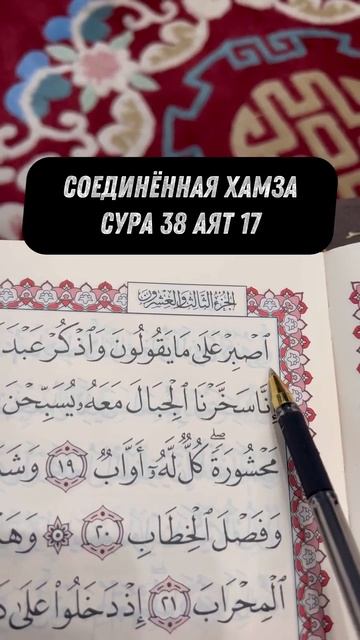 СОЕДИНЁННАЯ ХАМЗА
СУРА 38 АЯТ 17
الجزء الثالث والعشرون
ٱصْبِرْ عَلَىٰ مَا يَقُولُونَ وَٱذْكُرْ عَبْدَ
إِنَّا سَخَّرْنَا ٱلْجِبَالَ مَعَهُۥ يُسَبِّحْنَ
مَحْشُورَةً ۖ كُلٌّ لَّهُۥٓ أَوَّابٌ ١٩ وَشَ
وَفَصْلَ ٱلْخِطَابِ ٢٠ ۞ وَهَ
ٱلْمِحْرَابَ ٢١ إِذْ دَخَلُوا۟ عَلَىٰ دَ